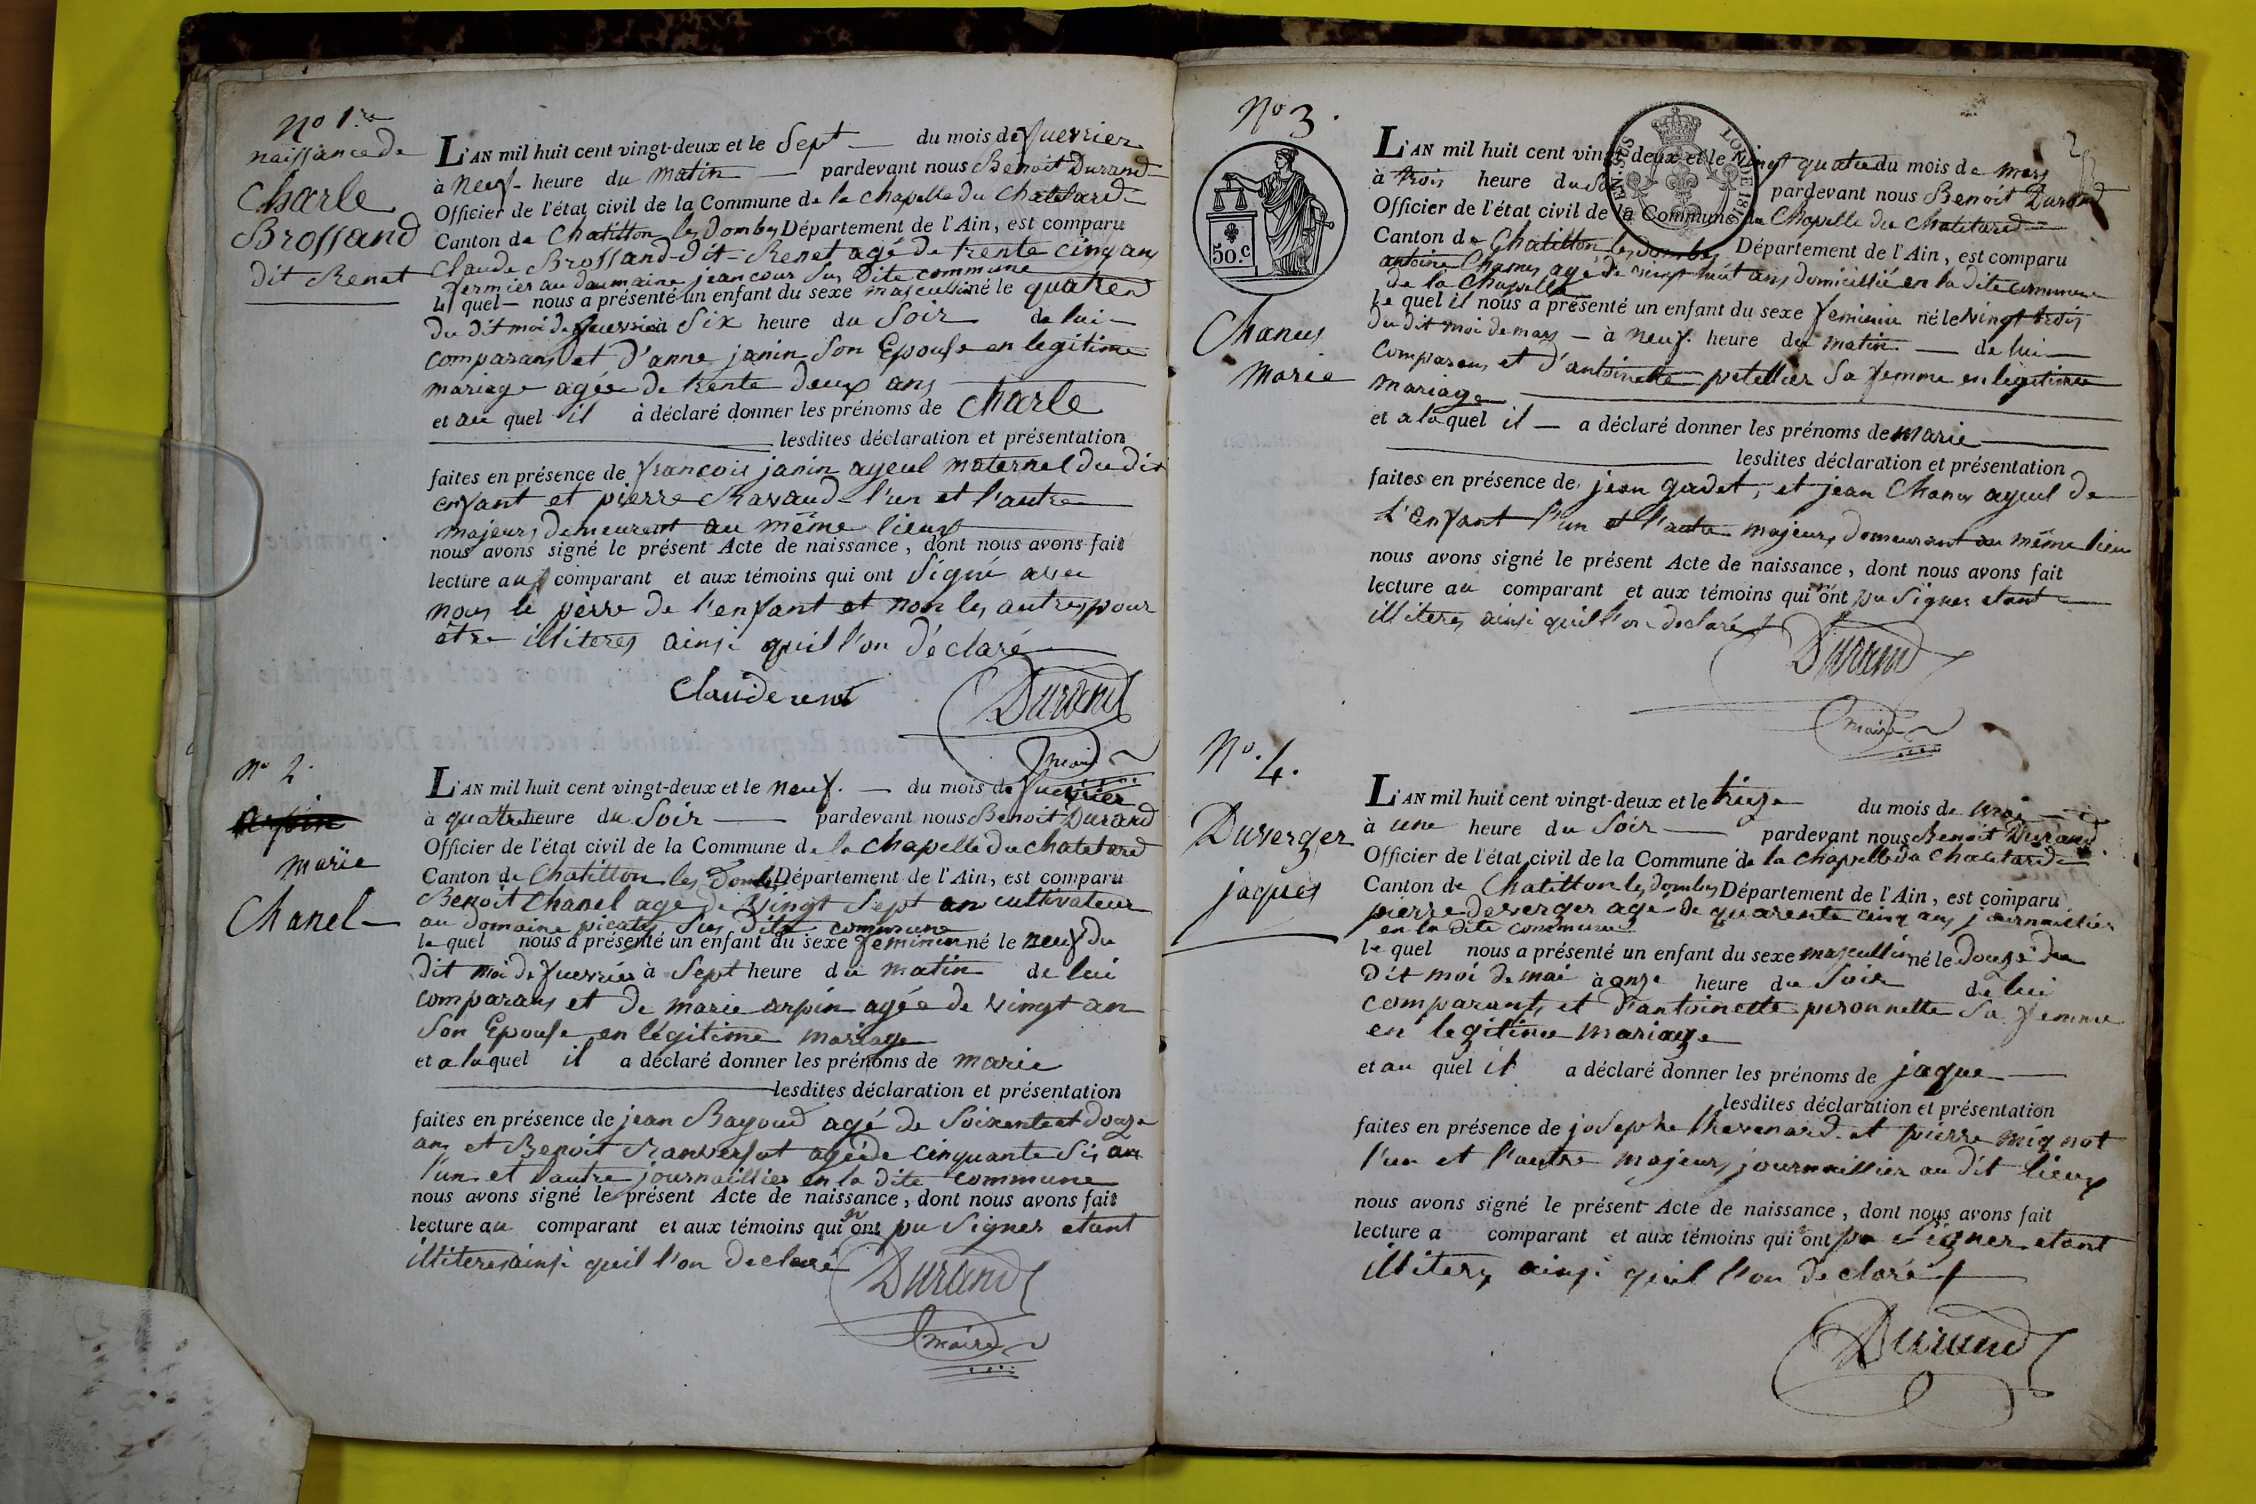 No 1re
naissance de
Charle
Brossand
dit Renet
L'AN mil huit cent vingt-deux et le Sept du mois de fuevrier
à neuf heure du matin pardevant nous Benoit Durand
Officier de l'état civil de la Commune de la Chapelle du Chatelard
Canton de Chatillon les Dombes Département de l'Ain, est comparu
Claude Brossand dit Renet agé de trente cinq ans
fermier au doumaine jean cour sus dite commune
le quel nous a présenté un enfant du sexe masculin né le quatre
du dit moi de fuevrier à Six heure du Soir de lui
comparans et d'anne janin Son Epouse en legitime
mariage agée de trente deux ans
et au quel il à déclaré donner les prénoms de Charle
lesdites déclaration et présentation
faites en présence de francois janin ayeul maternel du dit
enfant et pierre Ravaud l'un et l'autre
majeurs demeurant au même lieux
nous avons signé le présent Acte de naissance, dont nous avons fait
lecture au comparant et aux témoins qui ont Signé avec
nous le pèrre de l'enfant et non les autres pour
être illiteres ainsi quil l'on déclaré
Claude renet
Durand
maire
No 2.
marie
Chanel
L'AN mil huit cent vingt-deux et le neuf. du mois de fuevrier
à quatre heure du Soir pardevant nous Benoit Durand
Officier de l'état civil de la Commune de la Chapelle du Chatelard
Canton de Chatillon les Dombes Département de l'Ain, est comparu
Benoit Chanel agé de vingt Sept an cultivateur
au domaine picates Sus Dite commune
le quel nous a présenté un enfant du sexe feminin né le neuf du
dit moi de fuevrier à Sept heure du matin de lui
comparans et de marie arpin agée de vingt an
Son Epouse en légitime mariage
et a la quel il a déclaré donner les prénoms de marie
lesdites déclaration et présentation
faites en présence de jean Bayoud agé de Soixente et douze
ans et Benoit agé de cinquante Six an
l'un et l'autre journaillier en la dite commune
nous avons signé le présent Acte de naissance, dont nous avons fait
lecture au comparant et aux témoins qui n'ont pu Signer etant
illiteres ainsi quil l'on declaré
Durand
maire
No 3.
50.C
Chanus
Marie
L'AN mil huit cent vingt-deux et le vingt quatre du mois de mars
à trois heure du Soir pardevant nous Benoit Durand
Officier de l'état civil de la Commune de la Chapelle du Chatelard
Canton de Chatillon les Dombes Département de l'Ain, est comparu
antoine Chanus agé de vingt huit ans domicillié en la dite commune
de la Chapelle
le quel il nous a présenté un enfant du sexe feminin né le vingt trois
du dit moi de mars à neuf. heure du matin de lui
comparans et d'antoinette petellier Sa femme en legitime
mariage
et a la quel il a déclaré donner les prénoms de marie
lesdites déclaration et présentation
faites en présence de jean gadet, et jean Chanus ayeul de
L'enfant l'un et l'autre majeurs domeurant au même lieu
nous avons signé le présent Acte de naissance, dont nous avons fait
lecture au comparant et aux témoins qui n'ont pu Signer etant
illiteres ainsi quil l'on declaré
Durand
maire
No. 4.
Duverger
jaques
L'AN mil huit cent vingt-deux et le treize du mois de mai
à une heure du Soir pardevant nous Benoit Durand
Officier de l'état civil de la Commune de la Chapelle du Chatelard
Canton de Chatillon les Dombes Département de l'Ain, est comparu
pierre deverger agé de quarente cinq ans journaillier
en la dite commune
le quel nous a présenté un enfant du sexe mascullin né le douze du
dit moi de mai à onze heure du Soir de lui
comparant, et d'antoinette peronnette Sa femme
en legitime mariage
et au quel il a déclaré donner les prénoms de jaque
lesdites déclaration et présentation
faites en présence de josephe thevenard et pierre mignot
l'un et l'autre majeurs journaillier au dit lieux
nous avons signé le présent Acte de naissance, dont nous avons fait
lecture a comparant et aux témoins qui n'ont pu Signer etant
illiteres ainsi quil l'on declaré
Durand